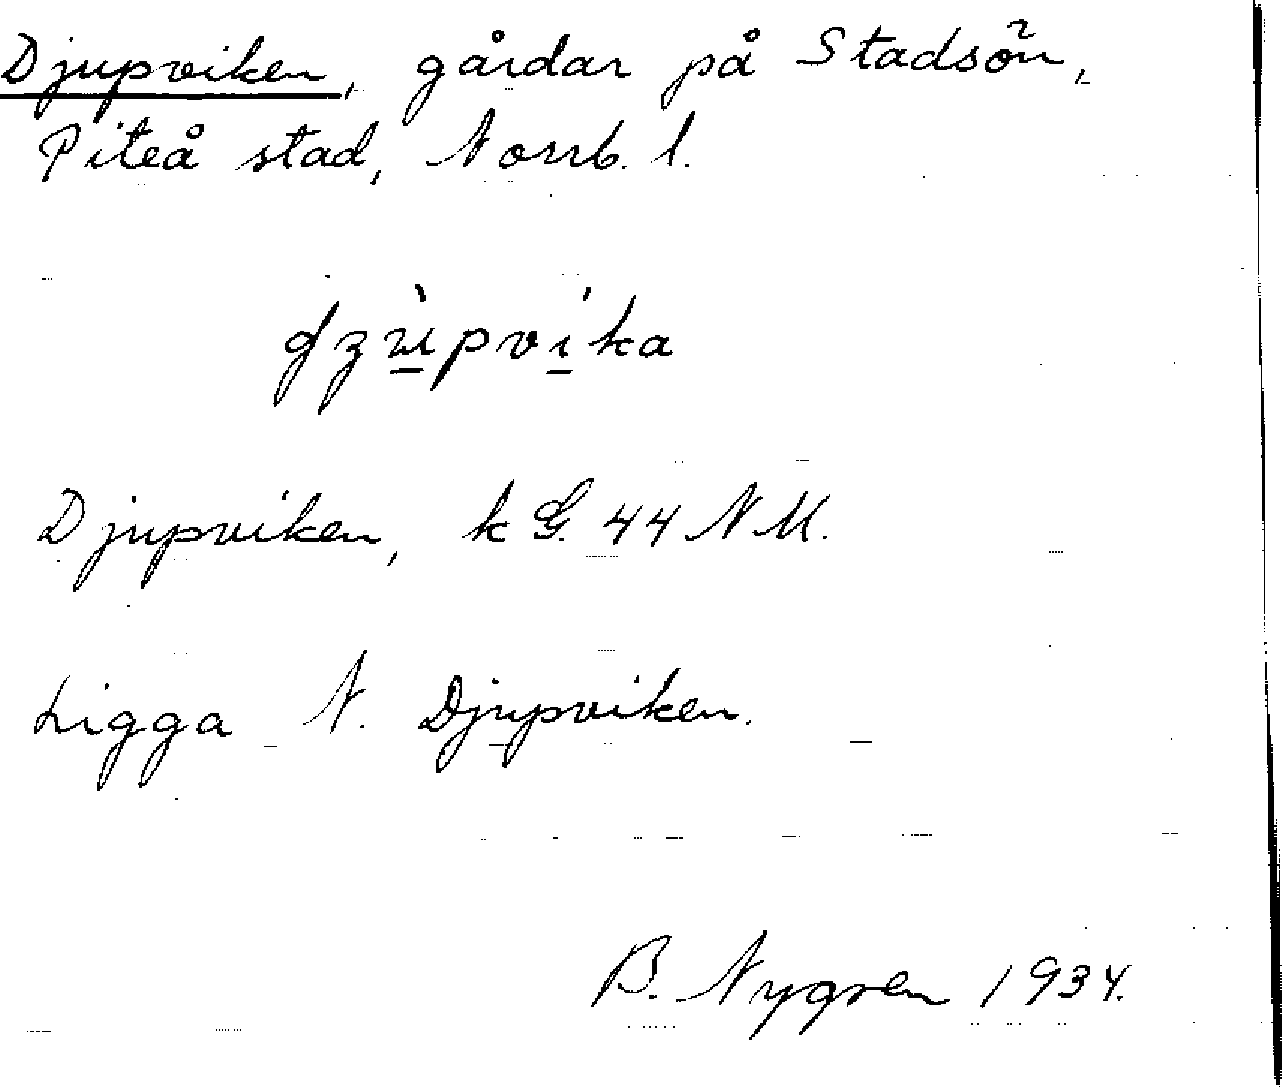 Djupviken, gårdar på Stadsön,
Piteå stad, Norrb. l.
Djupviken, k G. 44 NM.
Ligga N. Djupviken.
B. Nygren 1934.